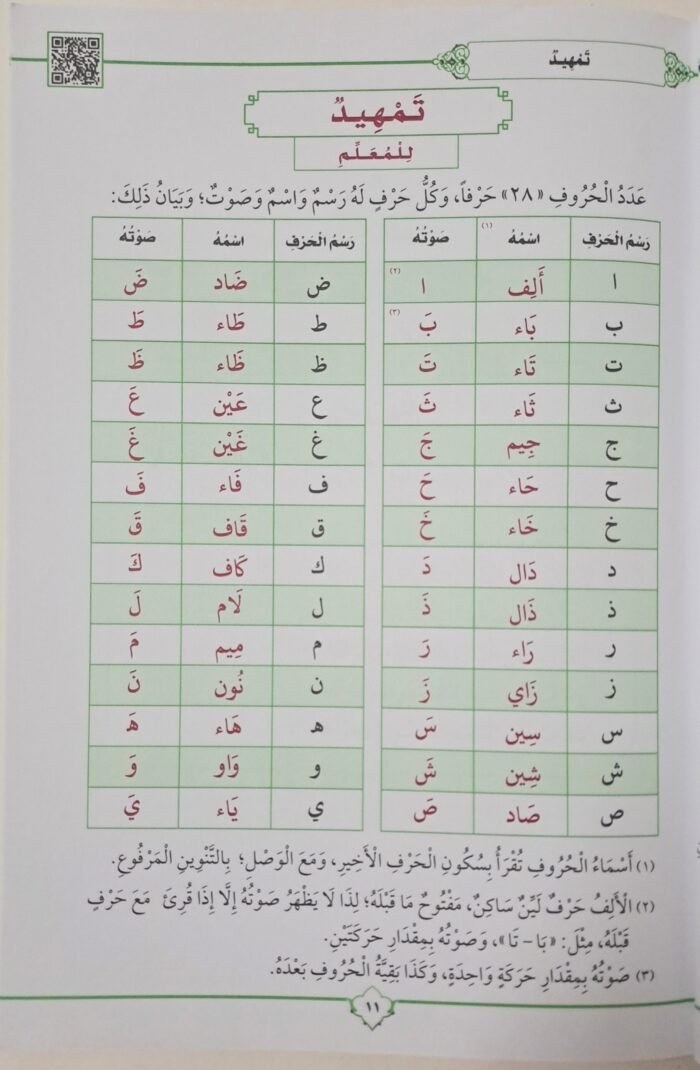 تَمْهِيدٌ
تَمْهِيدٌ
لِلْمُعَلِّمِ
عَدَدُ الْحُرُوفِ «٢٨» حَرْفاً، وَكُلُّ حَرْفٍ لَهُ رَسْمٌ وَاسْمٌ وَصَوْتٌ؛ وَبَيَانُ ذَلِكَ:
رَسْمُ الْحَرْفِ اسْمُهُ (١) صَوْتُهُ
ا أَلِف ا (٢)
ب بَاء بَ (٣)
ت تَاء تَ
ث ثَاء ثَ
ج جِيم جَ
ح حَاء حَ
خ خَاء خَ
د دَال دَ
ذ ذَال ذَ
ر رَاء رَ
ز زَاي زَ
س سِين سَ
ش شِين شَ
ص صَاد صَ
رَسْمُ الْحَرْفِ اسْمُهُ صَوْتُهُ
ض ضَاد ضَ
ط طَاء طَ
ظ ظَاء ظَ
ع عَيْن عَ
غ غَيْن غَ
ف فَاء فَ
ق قَاف قَ
ك كَاف كَ
ل لَام لَ
م مِيم مَ
ن نُون نَ
ه هَاء هَ
و وَاو وَ
ي يَاء يَ
(١) أَسْمَاءُ الْحُرُوفِ تُقْرَأُ بِسُكُونِ الْحَرْفِ الْأَخِيرِ، وَمَعَ الْوَصْلِ؛ بِالتَّنْوِينِ الْمَرْفُوعِ.
(٢) الْأَلِفُ حَرْفٌ لَيِّنٌ سَاكِنٌ، مَفْتُوحٌ مَا قَبْلَهُ؛ لِذَا لَا يَظْهَرُ صَوْتُهُ إِلَّا إِذَا قُرِئَ مَعَ حَرْفٍ
قَبْلَهُ، مِثْلَ: «بَا - تَا»، وَصَوْتُهُ بِمِقْدَارِ حَرَكَتَيْنِ.
(٣) صَوْتُهُ بِمِقْدَارِ حَرَكَةٍ وَاحِدَةٍ، وَكَذَا بَقِيَّةُ الْحُرُوفِ بَعْدَهُ.
١١